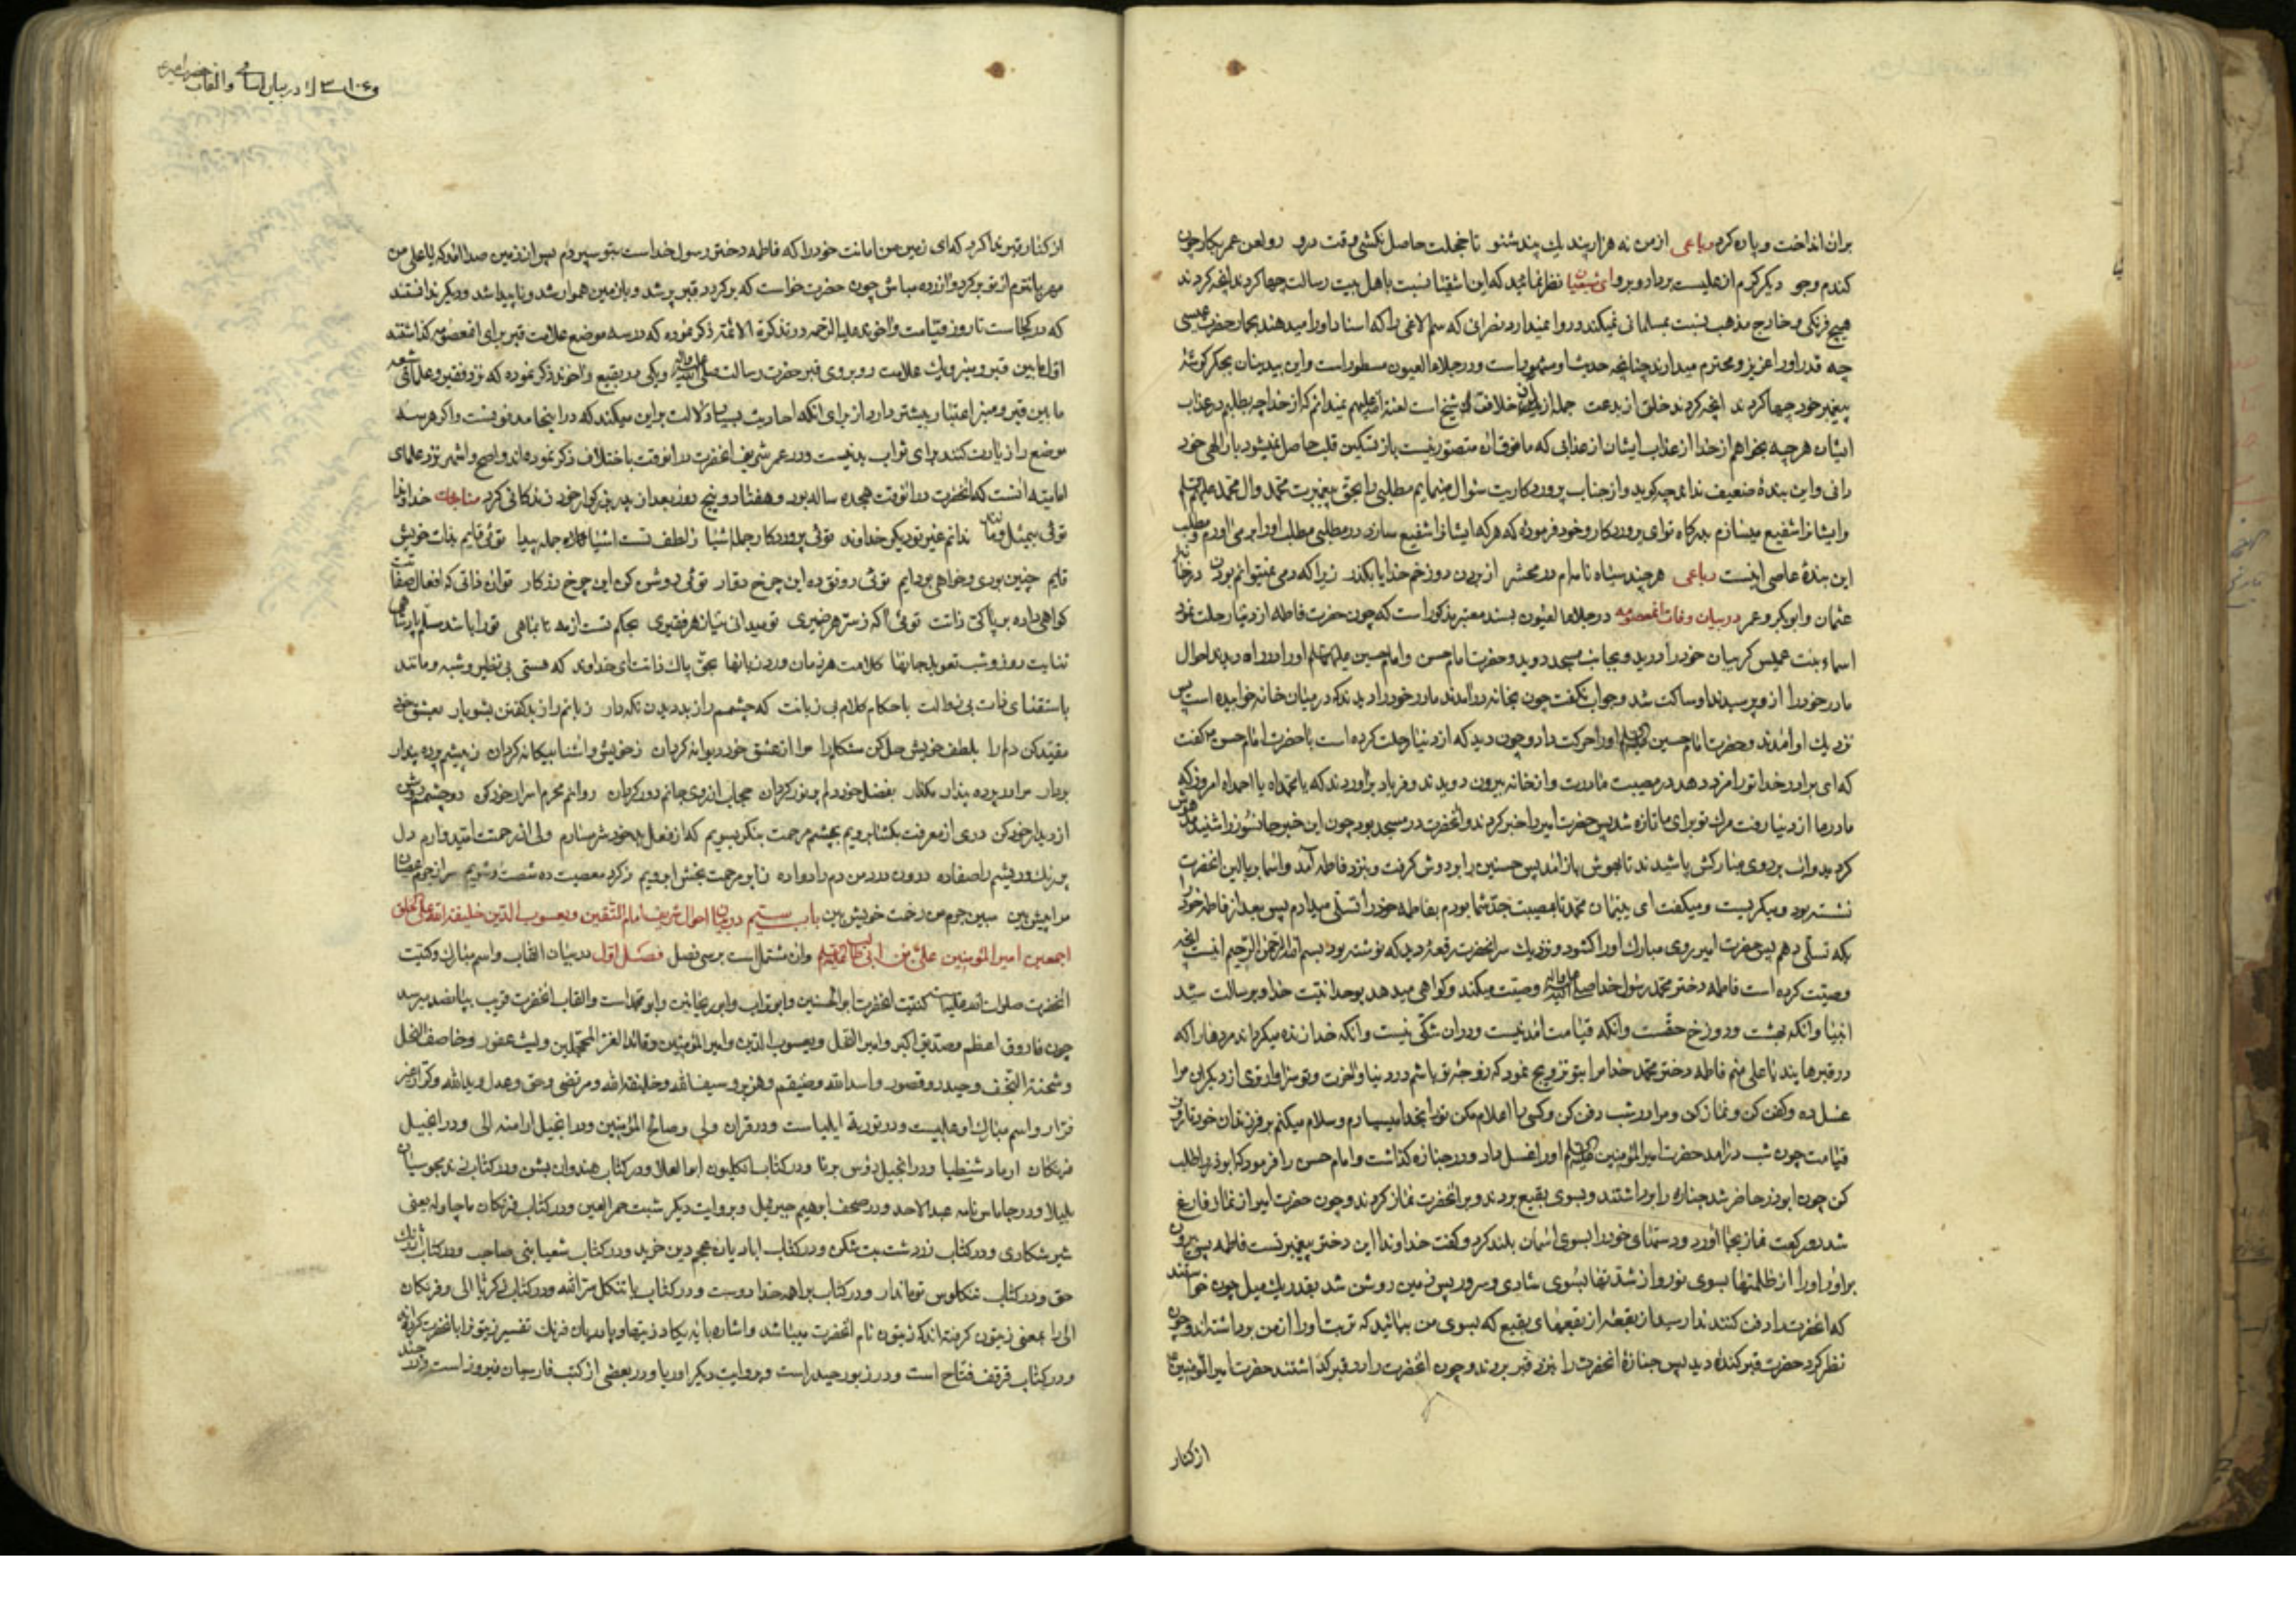 بران انداخت و پاره کرد رباعی از من نه هزار پند یك پند شنو تا خجلت حاصل نکشی وقت درو رو لعن عمر بکار چون
کندم و جو دیگر کرم از علیست بردار و برو ای شیعیان نظر نمائید که این اشقیا نسبت باهل بیت رسالت چها کردند انچه کردند
هیچ فرنکی و خارج مذهب نسبت بمسلمانی نمیکند و روا نمیدارد نصرانی که سم الاغی را که اسناد او را میدهند بحمار حضرت عیسی
چه قدر او را عزیز و محترم میدارند چنانچه حدیثا و مشهور است و در جلاء العیون مسطور است و این بیدینان بجکر کوشۀ
پیغمبر خود چها کردند انچه کردند خلق از بدعت جمله از خلافت شیخ است لعنة الله علیهم نمیدانم که از خدا چه بطلبم در عذاب
ایشان هر چه بخواهم از خدا از عذاب ایشان از عذابی که مافوق ان متصور نیست باز تسکین قلب حاصل نمیشود بار الهی خود
دانی و این بندۀ ضعیف نداند چه کوید و از جناب پروردکاریت سؤال مینمایم مطلبی را بحق پیغمبرت محمد وال محمد
وایشانرا شفیع میسازم بدرکاه تو ای پروردکار و خود فرمودۀ که هر که ایشانرا شفیع سازد در مطلبی مطلب او را بر می اورم و مطلب
این بندۀ عاصی اینست رباعی هر چند سیاه نامه ام در محشر از بردن دوزخم خدایا بکذر زیرا که دمی نمیتوانم بودن در خانۀ
عثمان و ابوبکر و عمر در بیان وفات انمعصومه در جلاء العیون بسند معتبر مذکور است که چون حضرت فاطمه از دنیا رحلت نمود
اسماء بنت عمیس کریبان خود را درید و بجانب مسجد دوید و حضرت امام حسن و امام حسین او را در راه دیدند احوال
مادر خود را از و پرسیدند او ساکت شد و جواب نکفت چون بخانه در امدند مادر خود را دیدند که در میان خانه خوابیده است پس
نزدیك او امدند و حضرت امام حسین او را حرکت داد و چون دید که از دنیا رحلت کرده است با حضرت امام حسن کفت
که ای برادر خدا تو را مزد دهد در مصیبت مادرت و از خانه بیرون دویدند و فریاد براوردند که یا محمداه یا احمداه امروز که
مادر ما از دنیا رفت مرك تو برای ما تازه شد پس حضرت امیر را خبر کردند و انحضرت در مسجد بود چون این خبر جانسوز را شنید مدهوش
کردید و اب بر روی مبارکش پاشیدند تا بهوش باز امد پس حسنین را بر دوش کرفت و بنزد فاطمه آمد و اسما بر بالین انحضرت
نشسته بود و میکریست و میکفت ای یتیمان محمد تا بمصیبت جد شما بودم بفاطمه خود را تسلی میدادم پس بعد از فاطمه خود را
بکه تسلی دهم پس حضرت امیر روی مبارك او را کشود و نزدیك سر انحضرت رقعۀ دید که نوشته بود بسم الله الرحمن الرحیم اینست انچه
وصیت کرده است فاطمه دختر محمد رسول خدا وصیت میکند و کواهی میدهد بوحدانیت خدا و برسالت سید
انبیا و انکه بهشت و دوزخ حقست و انکه قیامت امدنیست و دران شکی نیست و انکه خدا زنده میکرداند مردهارا که
در قبرهایند یا علی منم فاطمه دختر محمد خدا مرا بتو تزویج نمود که زوجۀ تو باشم در دنیا و اخرت و تو سزاوارتری از دیکران مرا
غسل ده و کفن کن و نماز کن و مرا در شب دفن کن و کسی را اعلام مکن تو را بخدا میسپارم و سلام میکنم بر فرزندان خود تا روز
قیامت چون شب درامد حضرت امیر المؤمنین او را غسل داد و در جنازه کذاشت و امام حسن را فرمود که ابوذر را طلب
کن چون ابوذر حاضر شد جنازه را برداشتند و بسوی بقیع بردند و بر انحضرت نماز کردند و چون حضرت امیر از نماز فارغ
شد دو رکعت نماز بجا اورد و دستهای خود را بسوی اسمان بلند کرد و کفت خداوندا این دختر پیغمبر تست فاطمه پس بیرون
براور او را از ظلمتها بسوی نور و از شدتها بسوی شادی و سرور پس زمین روشن شد بقدر یك میل چون خواستند
که انحضرت را دفن کنند ندا رسید از بقعۀ از بقعهای بقیع که بسوی من بیائید که تربت او را از من برداشته اند و چون
نظر کرد حضرت قبر کنده دید پس جنازۀ انحضرت را بنزد قبر بردند و چون انحضرت را در قبر کذاشتند حضرت امیر المؤمنین
از کنار
در بیان اسامی والقاب حضرت امیر
از کنار قبر ندا کرد که ای زمین من امانت خود را که فاطمه دختر رسول خداست بتو سپردم پس از زمین صدا امد که یا علی من
مهربانترم از تو برکرد و ازرده مباش چون حضرت خواست که برکردد قبر پر شد و با زمین هموار شد و ناپیدا شد و دیکر ندانستند
که در کجاست تا روز قیامت و اخوند علیه الرحمه در تذکرة الائمه ذکر نموده که در سه موضع علامت قبر برای انمعصومه کذاشتند
اول مابین قبر و منبر و یك علامت روبروی قبر حضرت رسالت و یکی در بقیع و اخوند ذکر نموده که نزد فقیر و علمای شیعه
مابین قبر و منبر اعتبار بیشتر دارد از برای انکه احادیث بسیار دلالت براین میکند که در اینجا مدفونست و اکر هر سه
موضع را زیارت کنند برای ثواب بد نیست و در عمر شریف انحضرت در انوقت باختلاف ذکر نموده اند و اصح و اشهر نزد علمای
امامیه انست که انحضرت در انوقت هجده ساله بود و هفتاد و پنج روز بعد از پدر بزرکوار خود زندکانی کرد مناجات خداوندا
توئی بیمثل و مانند ندانم غیر تو دیکر خداوند توئی پروردکار جمله اشیا ز لطف تست اشیا کلاه جمله پیدا توئی قایم بذات خویش
قایم چنین بودی و خواهی بود دایم توئی رونق ده این چرخ دوار توئی روشن کن این چرخ زرکار توان ذاتی که افعال صفاتت
کواهی داده بر پاکی ذاتت توئی اکه ز سر هر ضمیری تو میدانی نیاز هر فقیری بحکم تست از مه تا بماهی تو را باشد مسلم پادشاهی
ثنایت روز و شب تعویذ جانها کلامت هر زمان ورد زبانها بحق پاك ذاتت ای خداوند که هستی بی نظیر و شبه و مانند
باستغنای ذات بی زوالت باحکام کلام بی زبانت که چشمم را ز بد دیدن نکه دار زبانم را ز بد کفتن بشو یار بعشق خود
مقید کن دلم را بلطف خویش حل کن مشکلم را مرا از عشق خود دیوانه کردان ز خویش و اشنا بیکانه کردان ز پیشم پرده پندار
بردار مرا در پرده پندار مکذار بفضل خود دلم پر نور کردان حجاب از روی جانم دور کردان روانم محرم اسرار خود کن دو چشمم روشن
از دیدار خود کن دری از معرفت بکشا برویم بچشم مرحمت بنکر بسویم که از فعل بد خود شرمسارم ولی از رحمتت امیدوارم دل
مرا پیش بین مبین جرم من رحمت خویش بین باب ستیم در بیان احوال شریف امام المتقین و یعسوب الدین خلیفة الله علی الخلق
اجمعین امیر المؤمنین علی بن ابی طالب وان مشتمل است بر سی فصل فصل اول در بیان القاب و اسم مبارك و کنیت
انحضرت صلوات الله علیه کنیت انحضرت ابو الحسنین و ابوتراب و ابوریحانتین و ابو محمد است و القاب انحضرت قریب بپانصد میرسد
چون فاروق اعظم و صدیق اکبر و امیر النحل و یعسوب الدین و امیر المؤمنین و قائد الغر المحجلین و لیث غضور و خاصف النعل
و شحنة النجف و حیدر و قصور و اسد الله و ضیغم و هزبر و سیف الله و خلیفة الله و مرتضی و حق و عدل و ید الله و کرار غیر
فرار و اسم مبارك او علیست و در توریة ایلیاست و در قران ولی و صالح المؤمنین و در انجیل ارامنه الی و در انجیل
فرنکان ارماد شنطیا و در انجیل رؤس برنا و در کتاب انکلیون ابوالعلا و در کتاب هندوان بشن و در کتاب
بلیلا و در جاماس نامه عبد الاحد و در صحف ابرهیم حیزبیل و بروایت دیکر شبت حمر العین و در کتاب فرنکان ماچاوله یعنی
شیر شکاری و در کتاب زردشت بت شکن و در کتاب ابادیان عجم دین خرید و در کتاب شعیا بنی صاحب و در کتاب
حق و در کتاب شکلوس توماندار و در کتاب براهمه خدا دوست و در کتاب پاتنکل سر الله و در کتاب الی و فرنکان
الی را بمعنی زیتون کرفته اند که زیتون نام انحضرت میباشد و اشاره بایه یکاد زیتها و پادریان فرنك تفسیر زیتون را بانحضرت کرده اند
و در کتاب قرقف فتاح است و در زبور حیدر است و بروایت دیکر اوریا و در بعضی از کتب فارسیان فیروز است و در چند